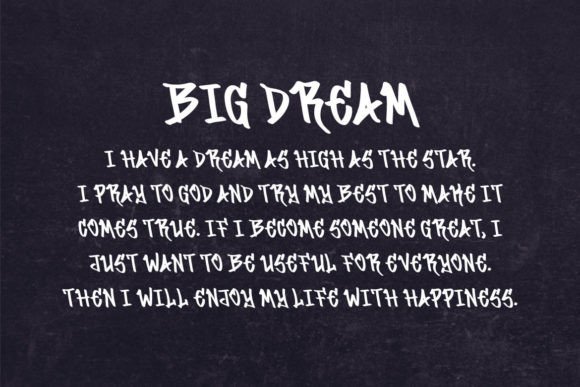 BIG DREAM
I HAVE A DREAM AS HIGH AS THE STAR.
I PRAY TO GOD AND TRY MY BEST TO MAKE IT
COMES TRUE. IF I BECOME SOMEONE GREAT, I
JUST WANT TO BE USEFUL FOR EVERYONE.
THEN I WILL ENJOY MY LIFE WITH HAPPINESS.